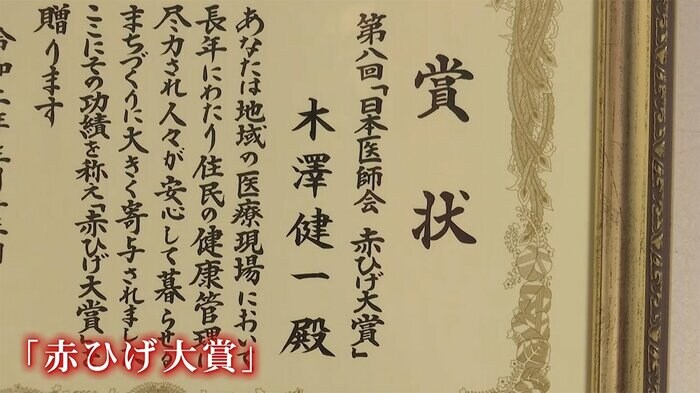 賞状
第八回「日本医師会 赤ひげ大賞」
木澤健一殿
あなたは地域の医療現場において
長年にわたり住民の健康管理に
尽力され人々が安心して暮らせる
まちづくりに大きく寄与されまし
ここにその功績を称え「赤ひげ大賞」
贈ります
令和二年
「赤ひげ大賞」